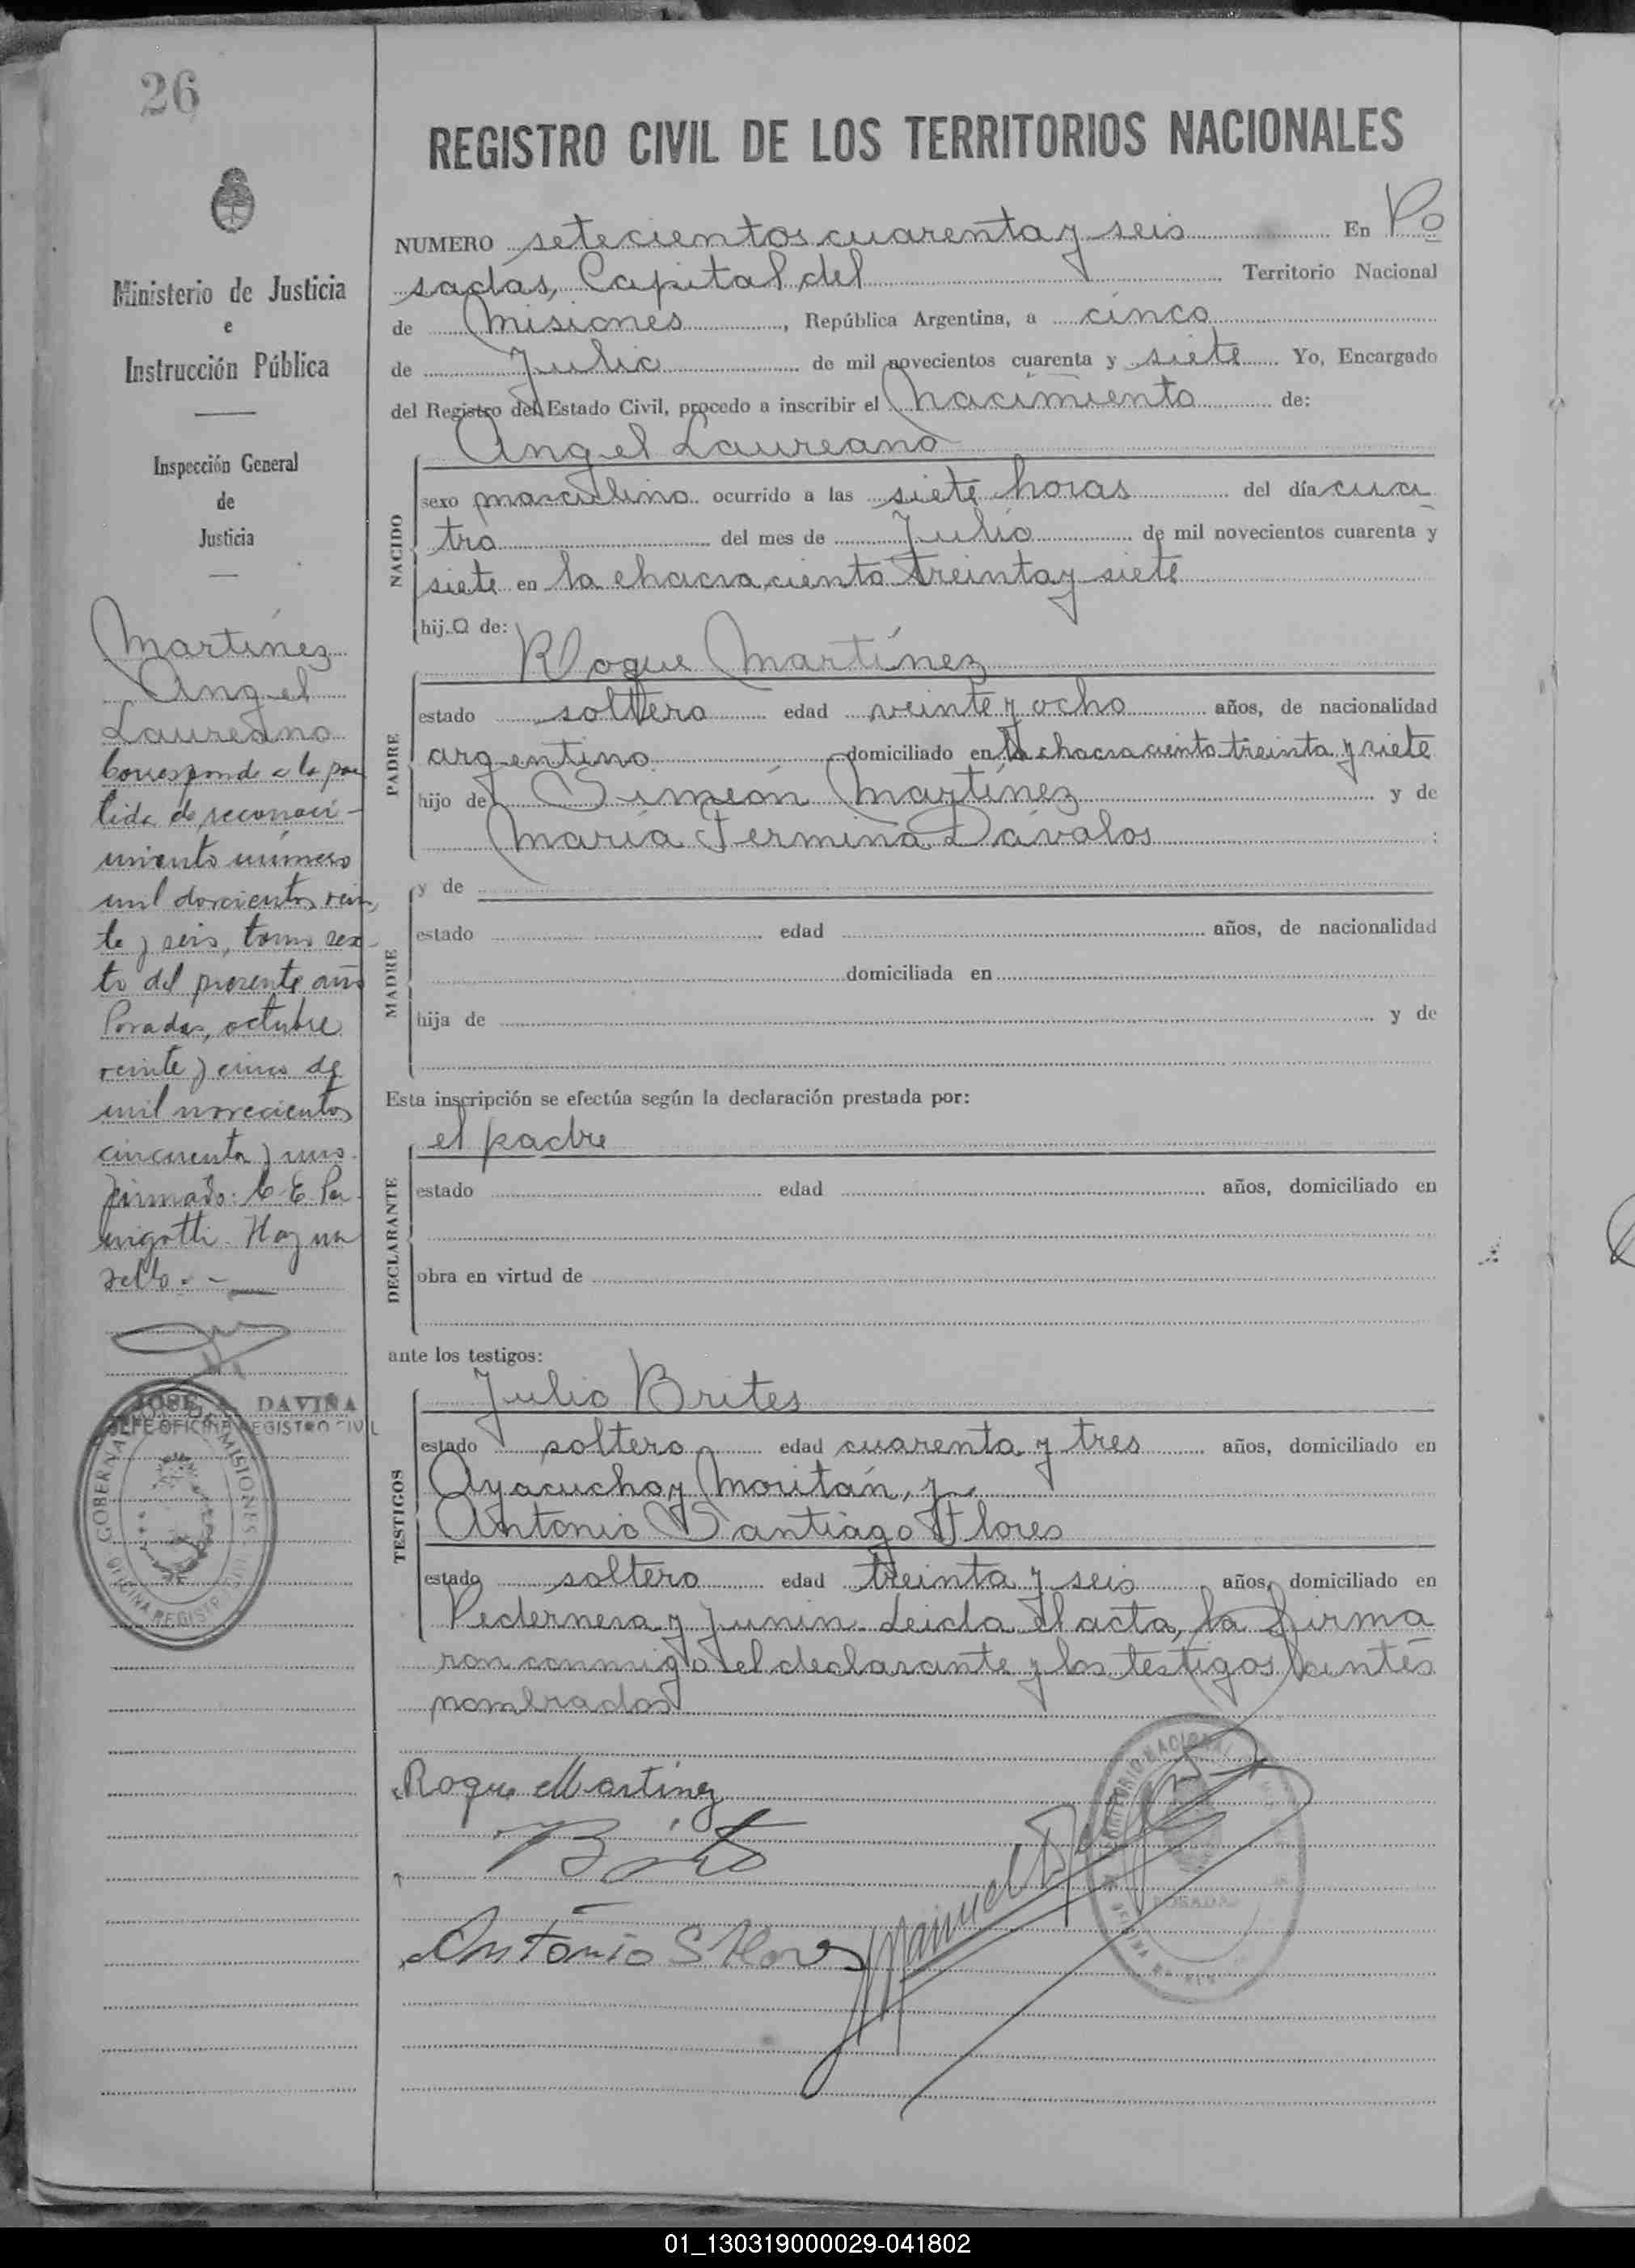 26
Ministerio de Justicia
e
Instrucción Pública
Inspección General
de
Justicia
Martínez
Angel
Laureano
Corresponde a la par
tida de reconoci-
miento número
mil doscientos vein
te y seis, tomo sex-
to del presente año
Posadas, octubre
veinte y cinco de
mil novecientos
cincuenta y uno.
firmado: C. E. Pe
nigotti. Hay un
sello.-
JOSE DAVIÑA
JEFE OFICINA REGISTRO CIVIL
GOBERNA MISIONES
OFICINA REGISTR
REGISTRO CIVIL DE LOS TERRITORIOS NACIONALES
NUMERO setecientos cuarenta y seis En Po
sadas, Capital del Territorio Nacional
de Misiones, República Argentina, a cinco
de Julio de mil novecientos cuarenta y siete Yo, Encargado
del Registro del Estado Civil, procedo a inscribir el nacimiento de:
Angel Laureano
NACIDO
sexo masculino ocurrido a las siete horas del día cua
tro del mes de Julio de mil novecientos cuarenta y
siete en la chacra ciento treinta y siete
hijo de:
Roque Martínez
PADRE
estado soltero edad veinte y ocho años, de nacionalidad
argentino domiciliado en la chacra ciento treinta y siete
hijo de Simeón Martínez y de
María Fermina Dávalos :
MADRE
y de
estado edad años, de nacionalidad
domiciliada en
hija de y de
Esta inscripción se efectúa según la declaración prestada por:
el padre
DECLARANTE
estado edad años, domiciliado en
obra en virtud de
ante los testigos:
Julio Brites
TESTIGOS
estado soltero edad cuarenta y tres años, domiciliado en
Ayacucho y Moritán, y
Antonio Santiago Flores
estado soltero edad treinta y seis años, domiciliado en
Pedernera y Junin. Leida el acta, la firma
ron conmigo el declarante y los testigos antes
nombrados
Roque Martínez
Antonio S Flores
Manuel
TERRITORIO NACIONAL
POSADAS
01_130319000029-041802